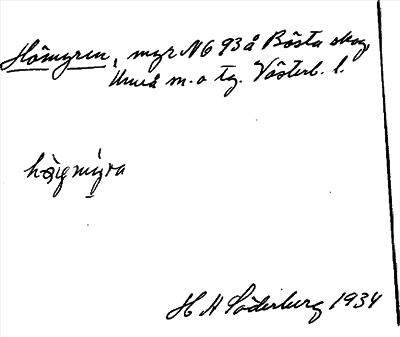 Hömyren, myr N6 93 å Bösta skog,
Umeå m. o tg. Västerb. l.
högmýra
H N Söderberg 1934